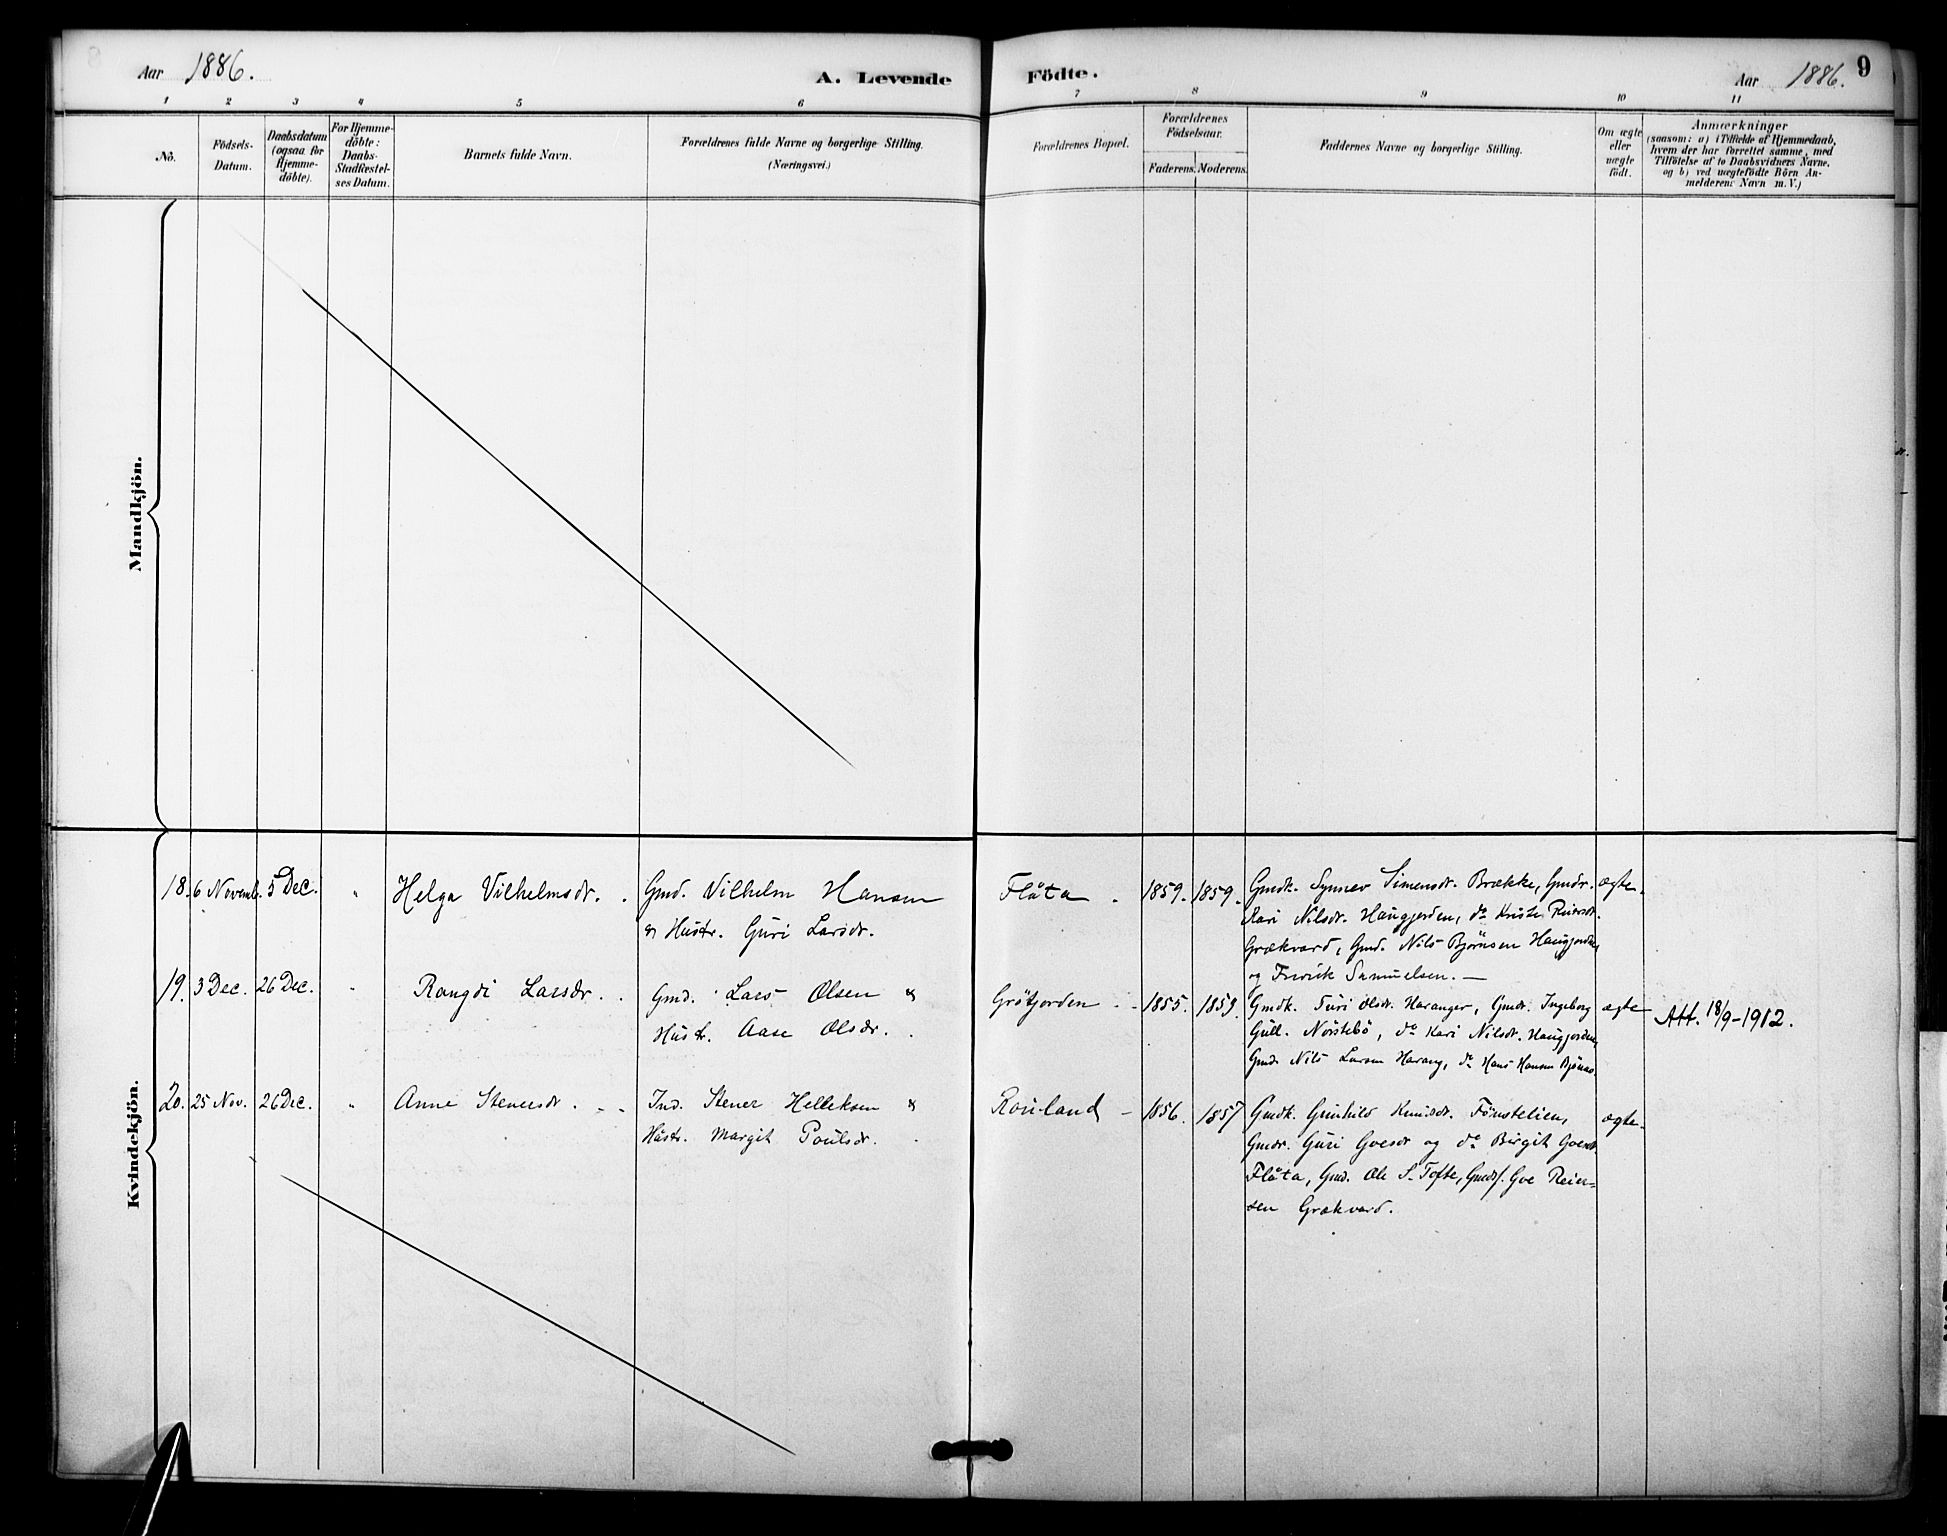 Aar 1886.
A. Levende Födte.
Aar 1886.
9
1 2 3 4 5 6 7 8 9 10 11
No.
Födsels-
Datum.
Daabsdatum
(ogsaa for
Hjemme-
döbte).
For Hjemme-
döbte:
Daabs-
Stadfæstel-
ses Datum.
Barnets fulde Navn.
Forældrenes fulde Navne og borgerlige Stilling.
(Næringsvei.)
Forældrenes Bopæl.
Forældrenes
Födselsaar.
Faderens. Moderens.
Faddernes Navne og borgerlige Stilling.
Om ægte
eller
uægte
födt.
Anmærkninger
(saasom: a) i Tilfælde af Hjemmedaab,
hvem der har forrettet samme, med
Tilföielse af to Daabsvidners Navne,
og b) ved uægtefödte Börn An-
melderens Navn m. V.)
Mandkjön.
Kvindekjön.
18. 6 Novemb. 5 Dec. " Helga Vilhelmsdr.
Gmd. Vilhelm Hansen
og Hustr. Guri Larsdr.
Flåta 1859. 1859.
Gmdk. Synnev Simensdr. Brække, Gmdr.
Kari Nilsdr. Haugjorden, do
Grækvard, Gmd. Nils Bjørnsen Haugjorden
og Samuelsen. —
ægte.
19. 3 Dec. 26 Dec. " Rangdi Larsdr.
Gmd. Lars Olsen &
Hustr. Aase Olsdr.
Grötjorden 1855. 1859.
Gmdk. Turi Olsdr. Haranger, Gmdr. Ingeborg
Gull. Nörstebö, do Kari Nilsdr. Haugjorden,
Gmd. Nils Larsen Harang, do Hans Hansen
ægte
Att. 18/9-1912.
20. 25 Nov. 26 Dec. " Anne Stenersdr.
Ind. Stener Helleksen &
Hustr. Margit Poulsdr.
Rouland 1856. 1857
Gmdk. Gunhild Knudsdr. Fönstelien,
Gmdr. Guri Goesdr og do Birgit Goesdr
Flåta, Gmd. Ole S. Tofte, Gmds. Goe Reier-
sen Grækvard.
ægte.